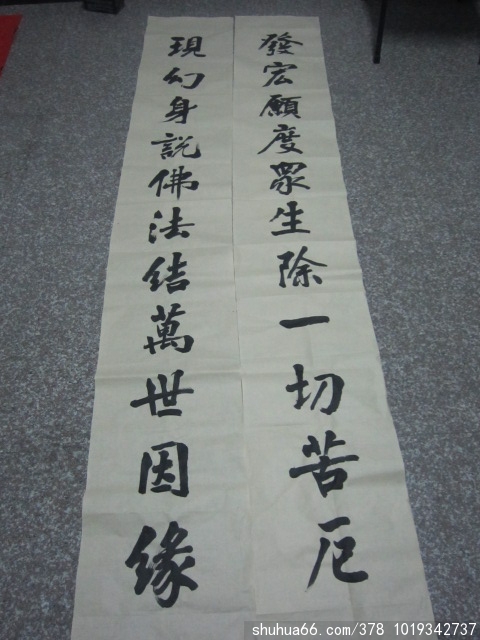 發宏願度眾生除一切苦厄
現幻身説佛法結萬世因缘
shuhua66.com/378 1019342737